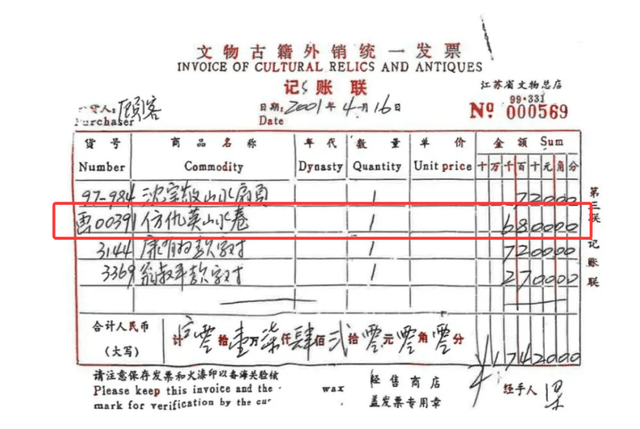 文物古籍外销统一发票
INVOICE OF CULTURAL RELICS AND ANTIQUES
记账联
江苏省文物总店
99·331
No 000569
顾客
Purchaser
日期: 2001年4月16日
Date
货号 商品名称 年代 数量 单价 金额 Sum
Number Commodity Dynasty Quantity Unit price 十万千百十元角分
97-984 山水扇页 1 72000
画00391 仿仇英山水卷 1 680000
3144 款字对 1 720000
3369 翁叔平款字对 1 270000
合计人民币 计 零拾壹万柒仟肆佰贰拾零元零角零分
(大写) ¥1742000
第三联 记账联
请注意保存发票和火漆印以备海关验候
Please keep this invoice and the wax 经售商店 经手人
mark for verification by the 盖发票专用章